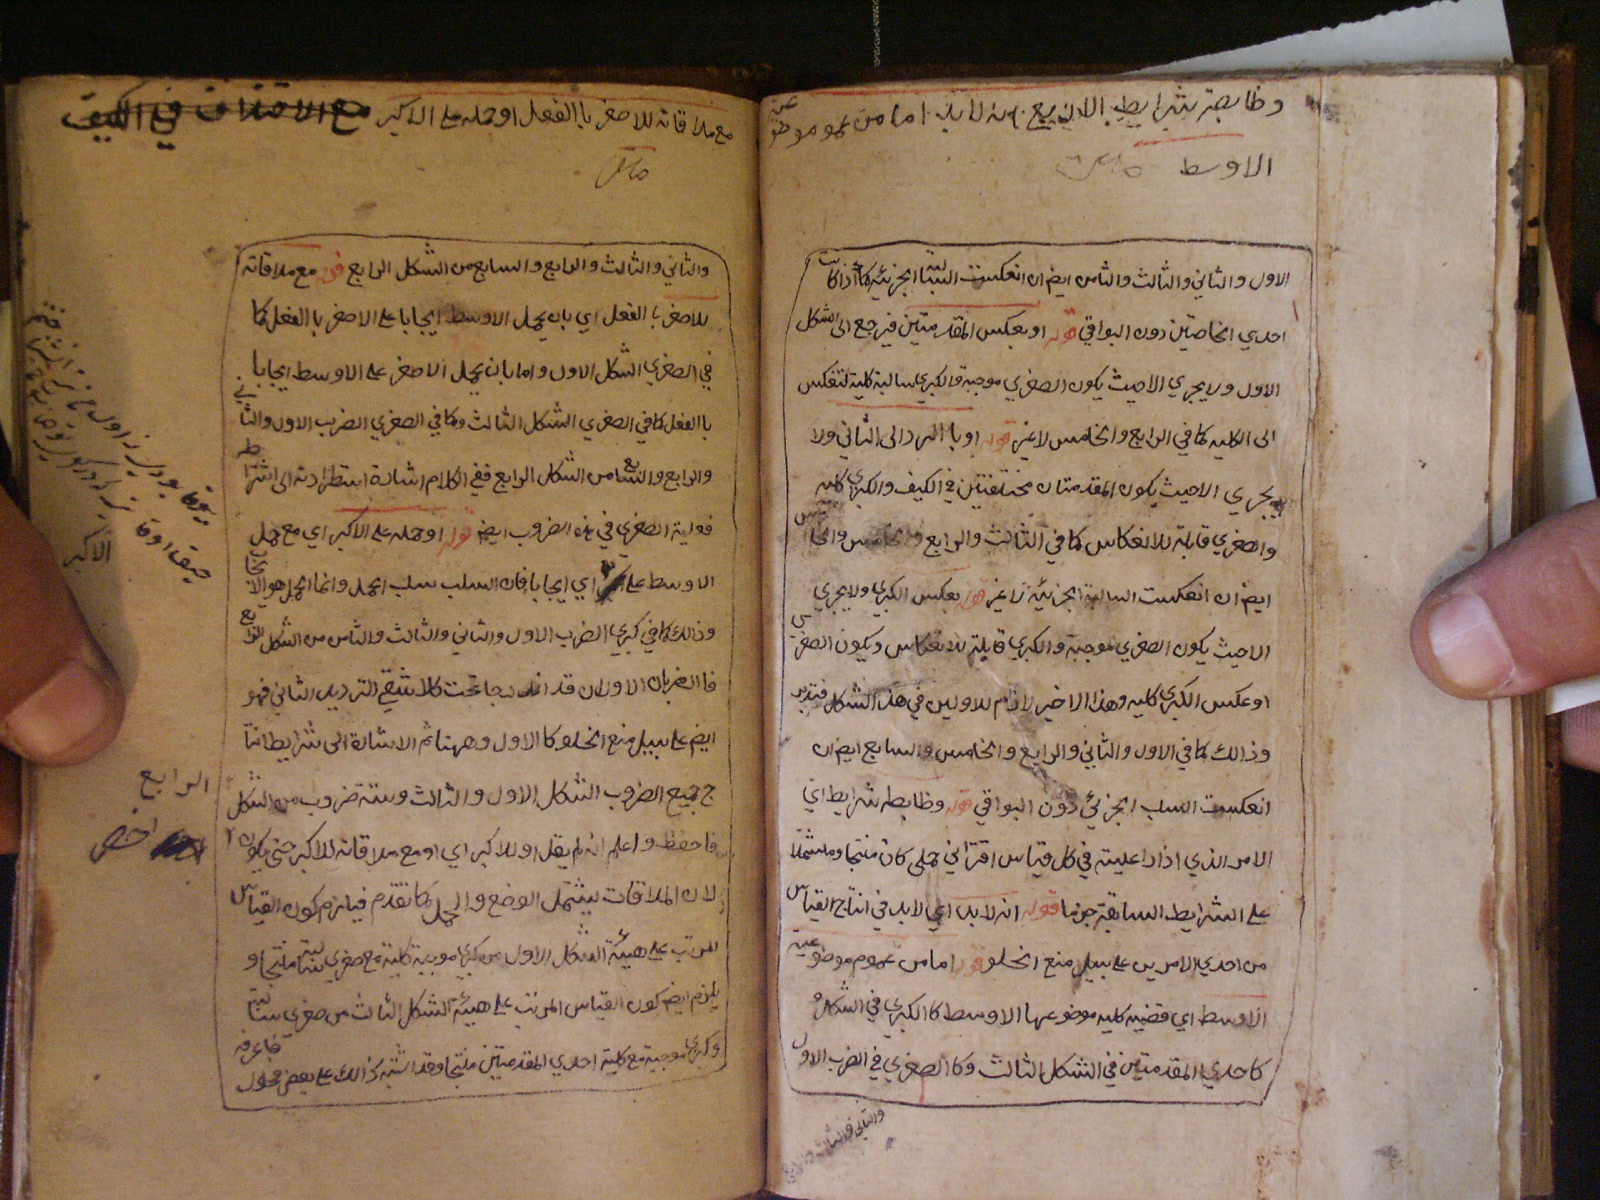 وضابطة شرايط الاربع انه لابد اما من عموم موضوعية
الاوسط
الاول والثاني والثالث والثامن ايض ان انعكست السالبة الجزئية كما اذا كانت
احدي الخاصتين دون البواقي قوله او بعكس المقدمتين فيرجع الى الشكل
الاول ولا يجري الا حيث يكون الصغري موجبة والكبري سالبة كلية لتنعكس
الى الكليه كما في الرابع والخامس لا غير قوله او با الرد الى الثاني ولا
يجري الا حيث يكون المقدمتان مختلفتين في الكيف والكبري كليه
والصغري قابلة للانعكاس كما في الثالث والرابع والخامس والسادس
ايض ان انعكست السالبة الجزئية لا غير قوله بعكس الكبري ولا يجري
الا حيث يكون الصغري موجبة والكبري قابلة للانعكاس ويكون الصغري
او عكس الكبري كليه وهذا الاخير لازم للاولين في هذ الشكل فتدبر
وذالك كما في الاول والثاني والرابع والخامس والسابع ايض ان
انعكست السلب الجزئي دون البواقي قوله وضابطه شرايط اي
الامر الذي اذا راعليته في كل قياس اقتراني حملي كان منتجا ومشتملا
علي الشرايط السابقة جزما قوله انه لابد اي لابد في انتاج القياس
من احدي الامرين علي سبيل منع الخلو قوله اما من عموم موضوعية
الاوسط اي قضيه كليه موضوعها الاوسط كا الكبري في الشكل
كاحدي المقدمتين في الشكل الثالث وكا الصغري في الضرب الاول
والثاني والثالث والرابع
مع ملاقاته للاصغر با الفعل او حمله على الاكبر مع الاختلاف في الكيف
والثاني والثالث والرابع والسابع من الشكل الرابع قوله مع ملاقاته
للاصغر با الفعل اي بان يحمل الاوسط ايجابا على الاصغر با الفعل كما
في الصغري الشكل الاول واما بان يحمل الاصغر على الاوسط ايجابا
با الفعل كما في الصغري الشكل الثالث وكما في الصغري الضرب الاول والثاني
والرابع والسابع من الشكل الرابع ففي الكلام اشارة استطرادية الى اشتراط
فعلية الصغري في هذه الضروب ايض قوله او حمله على الاكبر اي مع حمل
الاوسط على الاكبر اي ايجابا فان السلب سلب الحمل وانما الحمل هو الايجاب
وذالك كما في كبري الضرب الاول والثاني والثالث والثامن من الشكل الرابع
فا الضربان الاولان قد اندرجا تحت كلا شقي الترديد الثاني فهو
ايض على سبيل منع الخلو كا الاول وههنا تم الاشارة الى شرايط انتا
ج جميع الضروب الشكل الاول والثالث وستة ضروب من الشكل
الرابع
فاحفظ واعلم انه لم يقل او للاكبر اي او مع ملاقاته للاكبر حتي يكون
اخصر
لان الملاقات يشتمل الوضع والحمل كما تقدم فيلزم كون القياس
المرتب على هيئة الشكل الاول من كبري موجبة كلية مع صغري سالبة منتجا و
يلزم ايض كون القياس المرتب على هيئة الشكل الثالث من صغري سالبة
وكبري موجبة مع كلية احدي المقدمتين منتجا وقد اشتبه ذالك على بعض فحول
فاعرفه